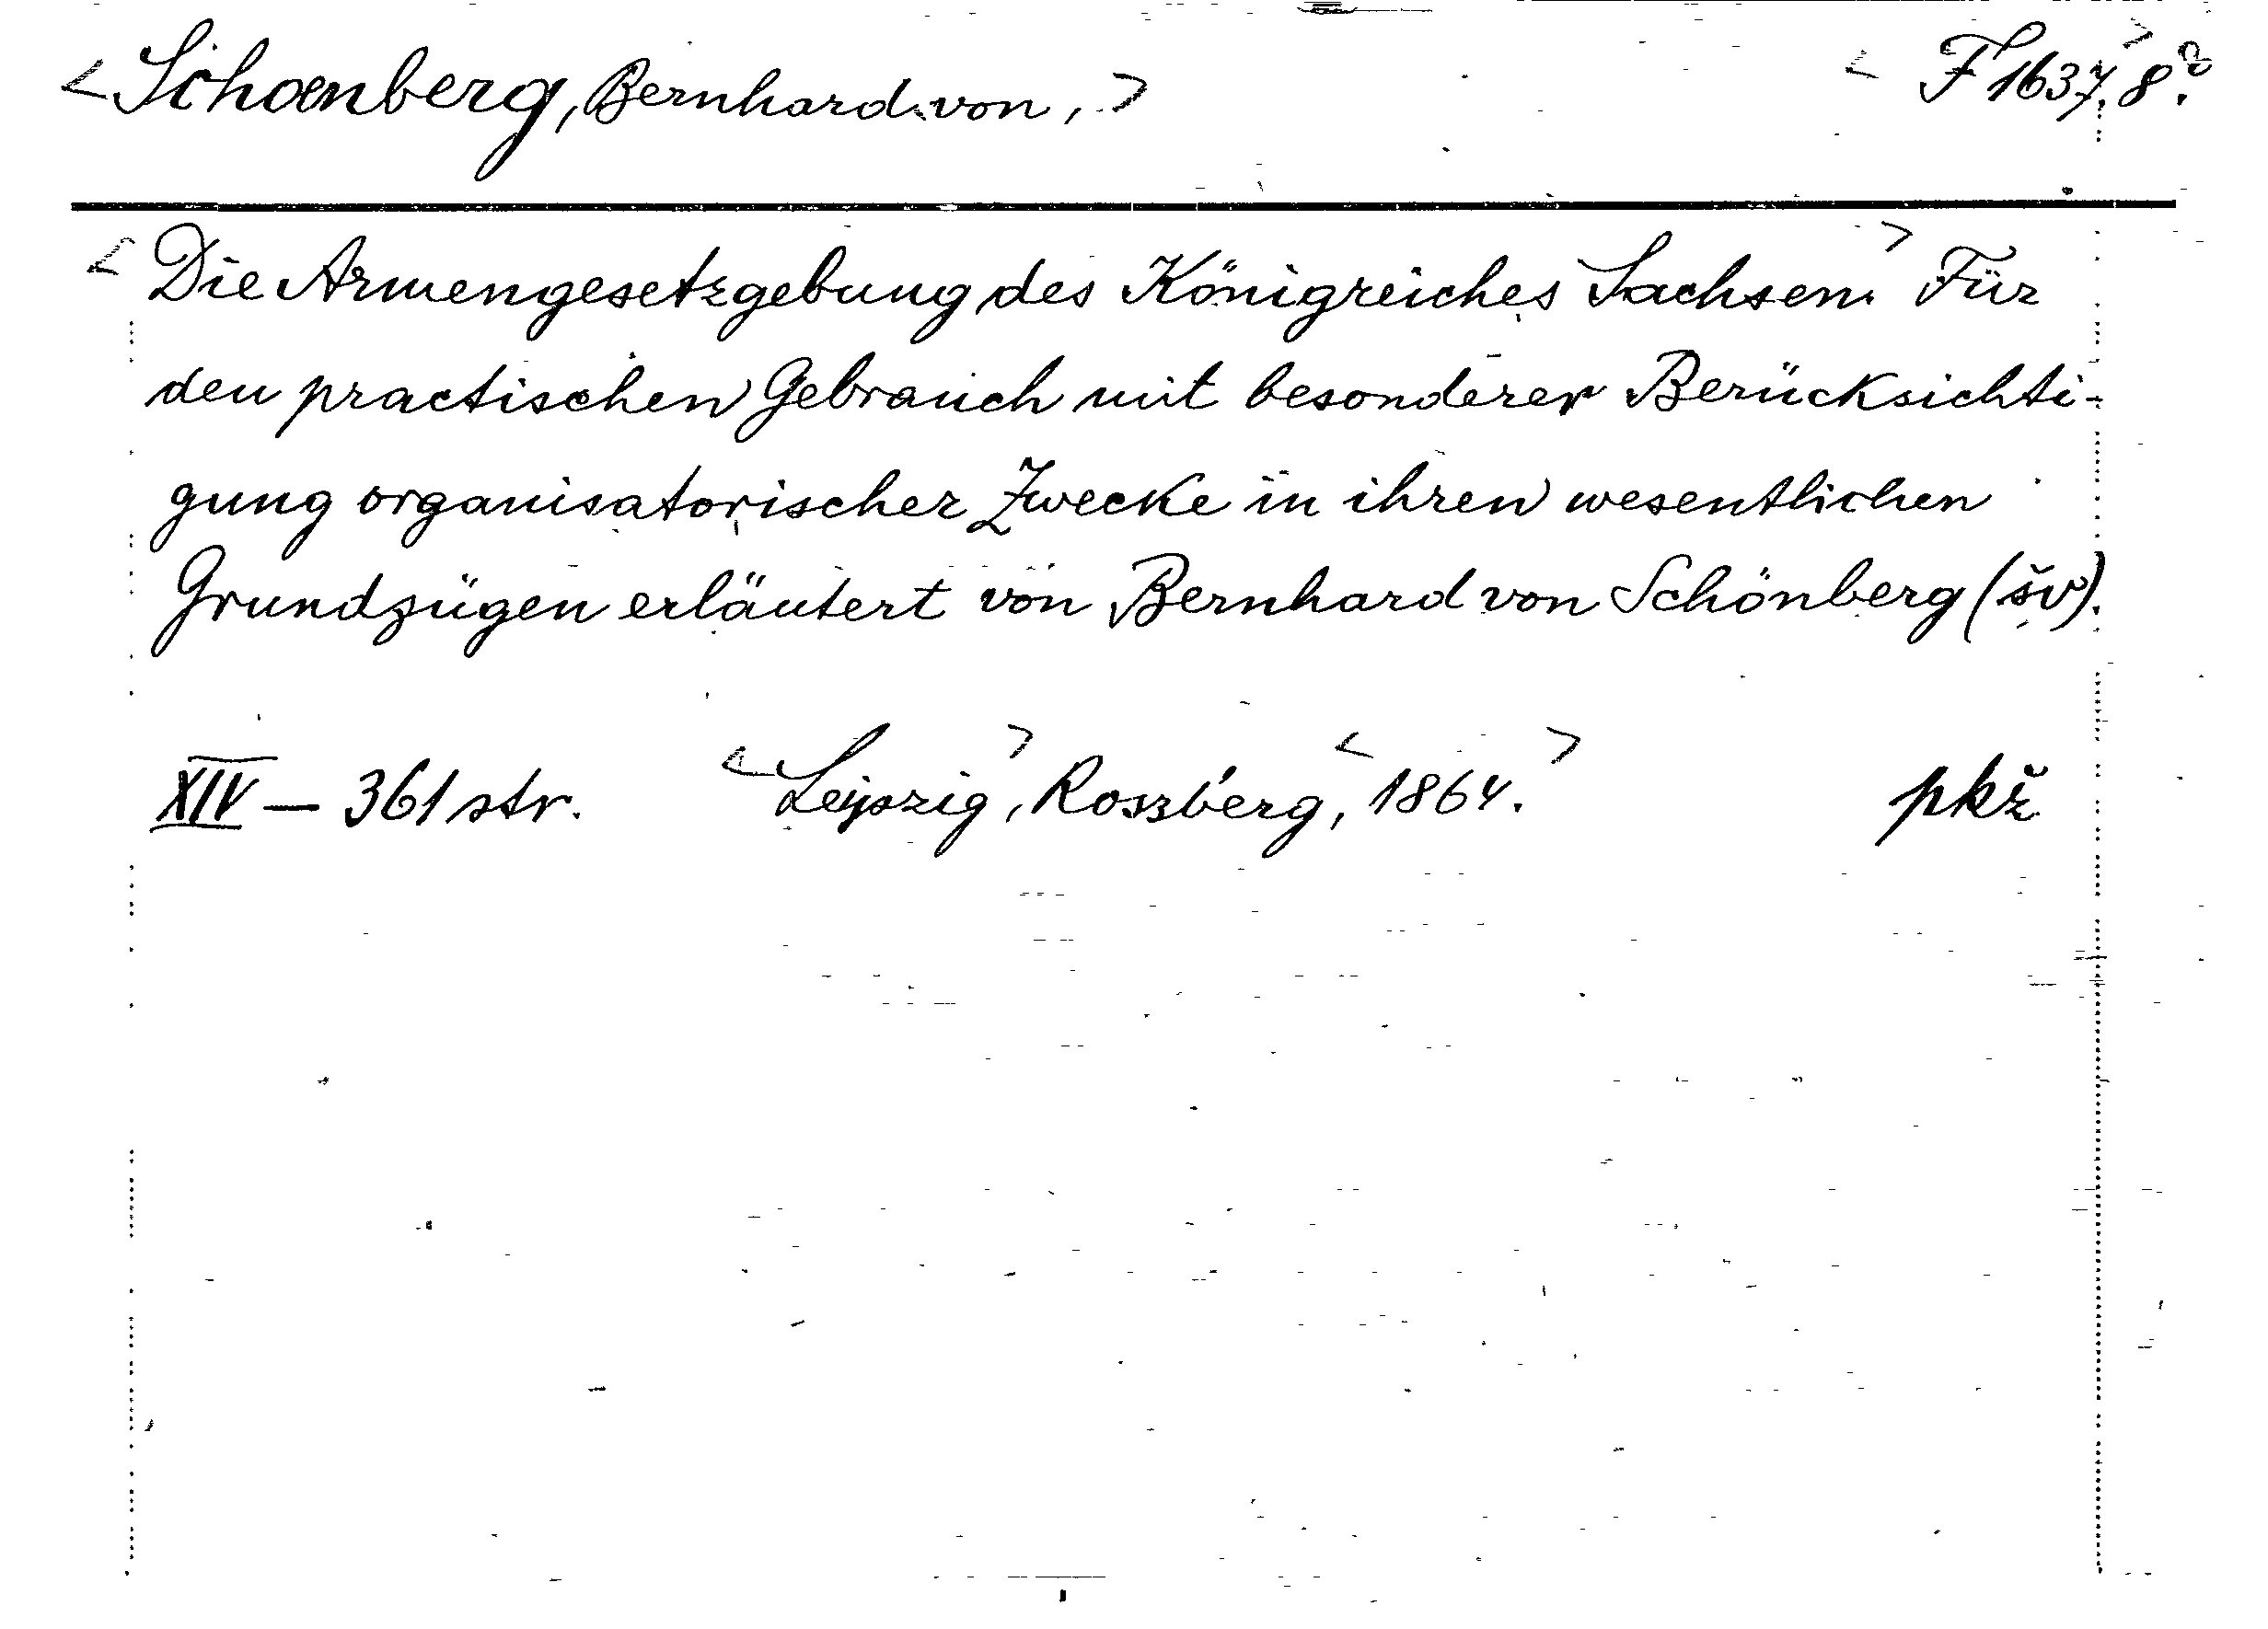 <Schoenberg, Bernhard von,> <F 1637.> 8º.
<Die Armengesetzgebung des Königreiches Sachsen.> Für
den practischen Gebrauch mit besonderer Berücksichti-
gung organisatorischer Zwecke in ihren wesentlichen
Grundzügen erläutert von Bernhard von Schönberg (šv).
XIV — 361 str. <Leipzig>, Roszberg, <1864.> pkž